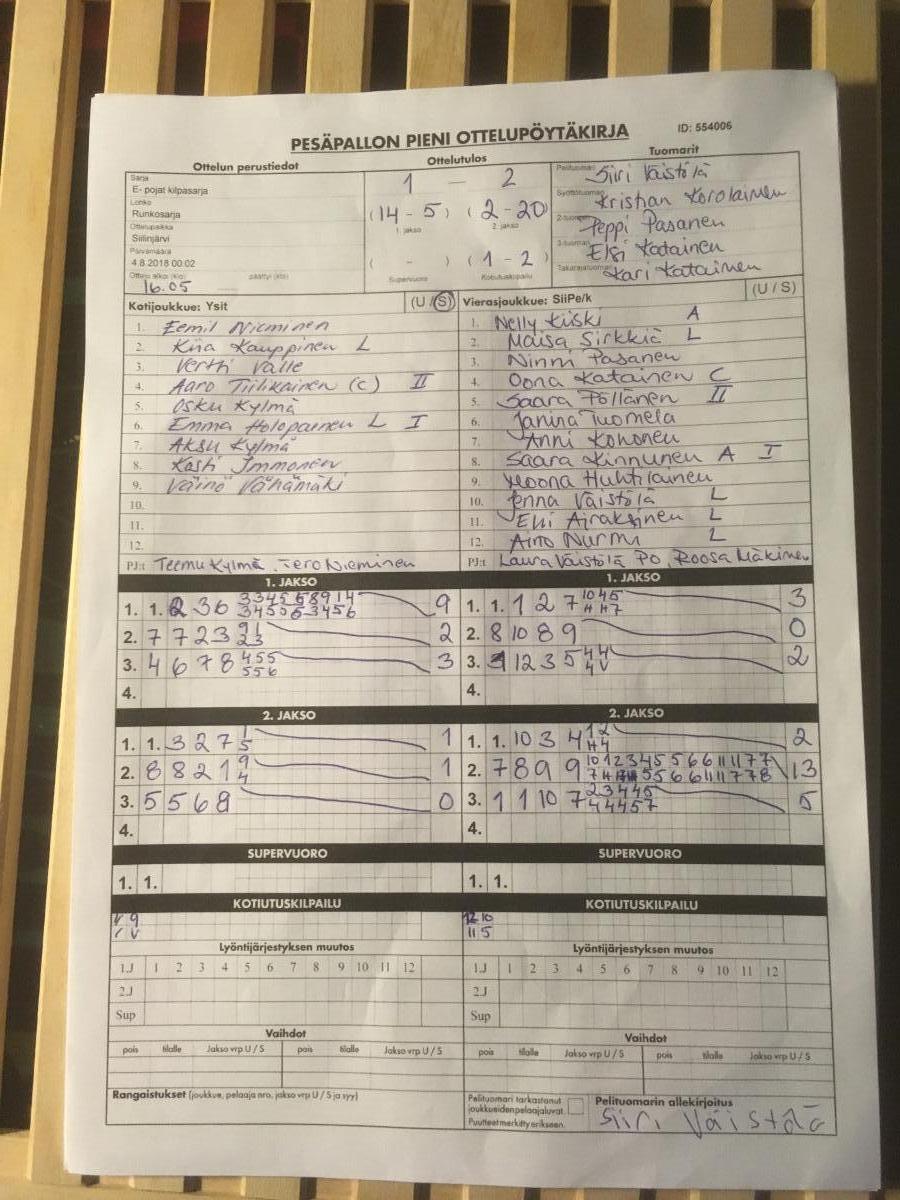 PESÄPALLON PIENI OTTELUPÖYTÄKIRJA
ID: 554006
Ottelun perustiedot
Sarja
E- pojat kilpasarja
Lohko
Runkosarja
Ottelupaikka
Siilinjärvi
Päivämäärä
4.8.2018 00:02
Ottelu alkoi (klo) päättyi (klo)
16.05
Ottelutulos
1 - 2
(14 - 5) (2 - 20)
1. jakso 2. jakso
( - ) (1 - 2)
Supervuoro Kotiutuskilpailu
Tuomarit
Pelituomari Siiri Väistölä
Syöttötuomari Kristian Korolainen
2-tuomari Peppi Pasanen
3-tuomari Elsi Katainen
Takarajatuomari Kari Katainen
Kotijoukkue: Ysit (U / S)
1. Eemil Nieminen
2. Kiia Kauppinen L
3. Vertti Valle
4. Aaro Tiilikainen (c) II
5. Osku Kylmä
6. Emma Holopainen L I
7. Aksu Kylmä
8. Kasti Immonen
9. Väinö Vähämäki
10.
11.
12.
PJ:t Teemu Kylmä, Tero Nieminen
Vierasjoukkue: SiiPe/k (U / S)
1. Nelly Kiiski A
2. Maisa Sirkkiä L
3. Ninni Pasanen
4. Oona Katainen C
5. Saara Pöllänen II
6. Janina Tuomela
7. Anni Kononen
8. Saara Kinnunen A I
9. Huhtilainen
10. Jenna Väistölä L
11. Elli Airaksinen L
12. Aino Nurmi L
PJ:t Laura Väistölä PO, Roosa Mäkinen
1. JAKSO
1. 1. 2 3 6 3 3 4 5 5 6 8 9 1 4 9
3 4 5 5 6 3 4 5 6
2. 7 7 2 3 2
3. 4 6 7 8 4 5 5 3
5 5 6
4.
1. JAKSO
1. 1. 1 2 7 10 4 5 3
H H 7
2. 8 10 8 9 0
3. 12 3 5 4 4 2
4 V
4.
2. JAKSO
1. 1. 3 2 7 1 1
5
2. 8 8 2 1 9 1
4
3. 5 5 6 8 0
4.
2. JAKSO
1. 1. 10 3 4 1 2 2
H 4
2. 7 8 9 9 10 1 2 3 4 5 5 6 6 11 11 7 7 13
5 5 6 6 11 11 7 7 8
3. 1 1 10 7 2 3 4 4 5 5
4 4 4 5 7
4.
SUPERVUORO
1. 1.
SUPERVUORO
1. 1.
KOTIUTUSKILPAILU
V 9
/ V
KOTIUTUSKILPAILU
12 10
11 5
Lyöntijärjestyksen muutos
1.J 1 2 3 4 5 6 7 8 9 10 11 12
2.J
Sup
Lyöntijärjestyksen muutos
1.J 1 2 3 4 5 6 7 8 9 10 11 12
2.J
Sup
Vaihdot
pois tilalle Jakso vrp U / S pois tilalle Jakso vrp U / S
Vaihdot
pois tilalle Jakso vrp U / S pois tilalle Jakso vrp U / S
Rangaistukset (joukkue, pelaaja nro, jakso vrp U / S ja syy)
Pelituomari tarkastanut
joukkueiden pelaajaluvat.
Puutteet merkitty erikseen.
Pelituomarin allekirjoitus
Siiri Väistölä